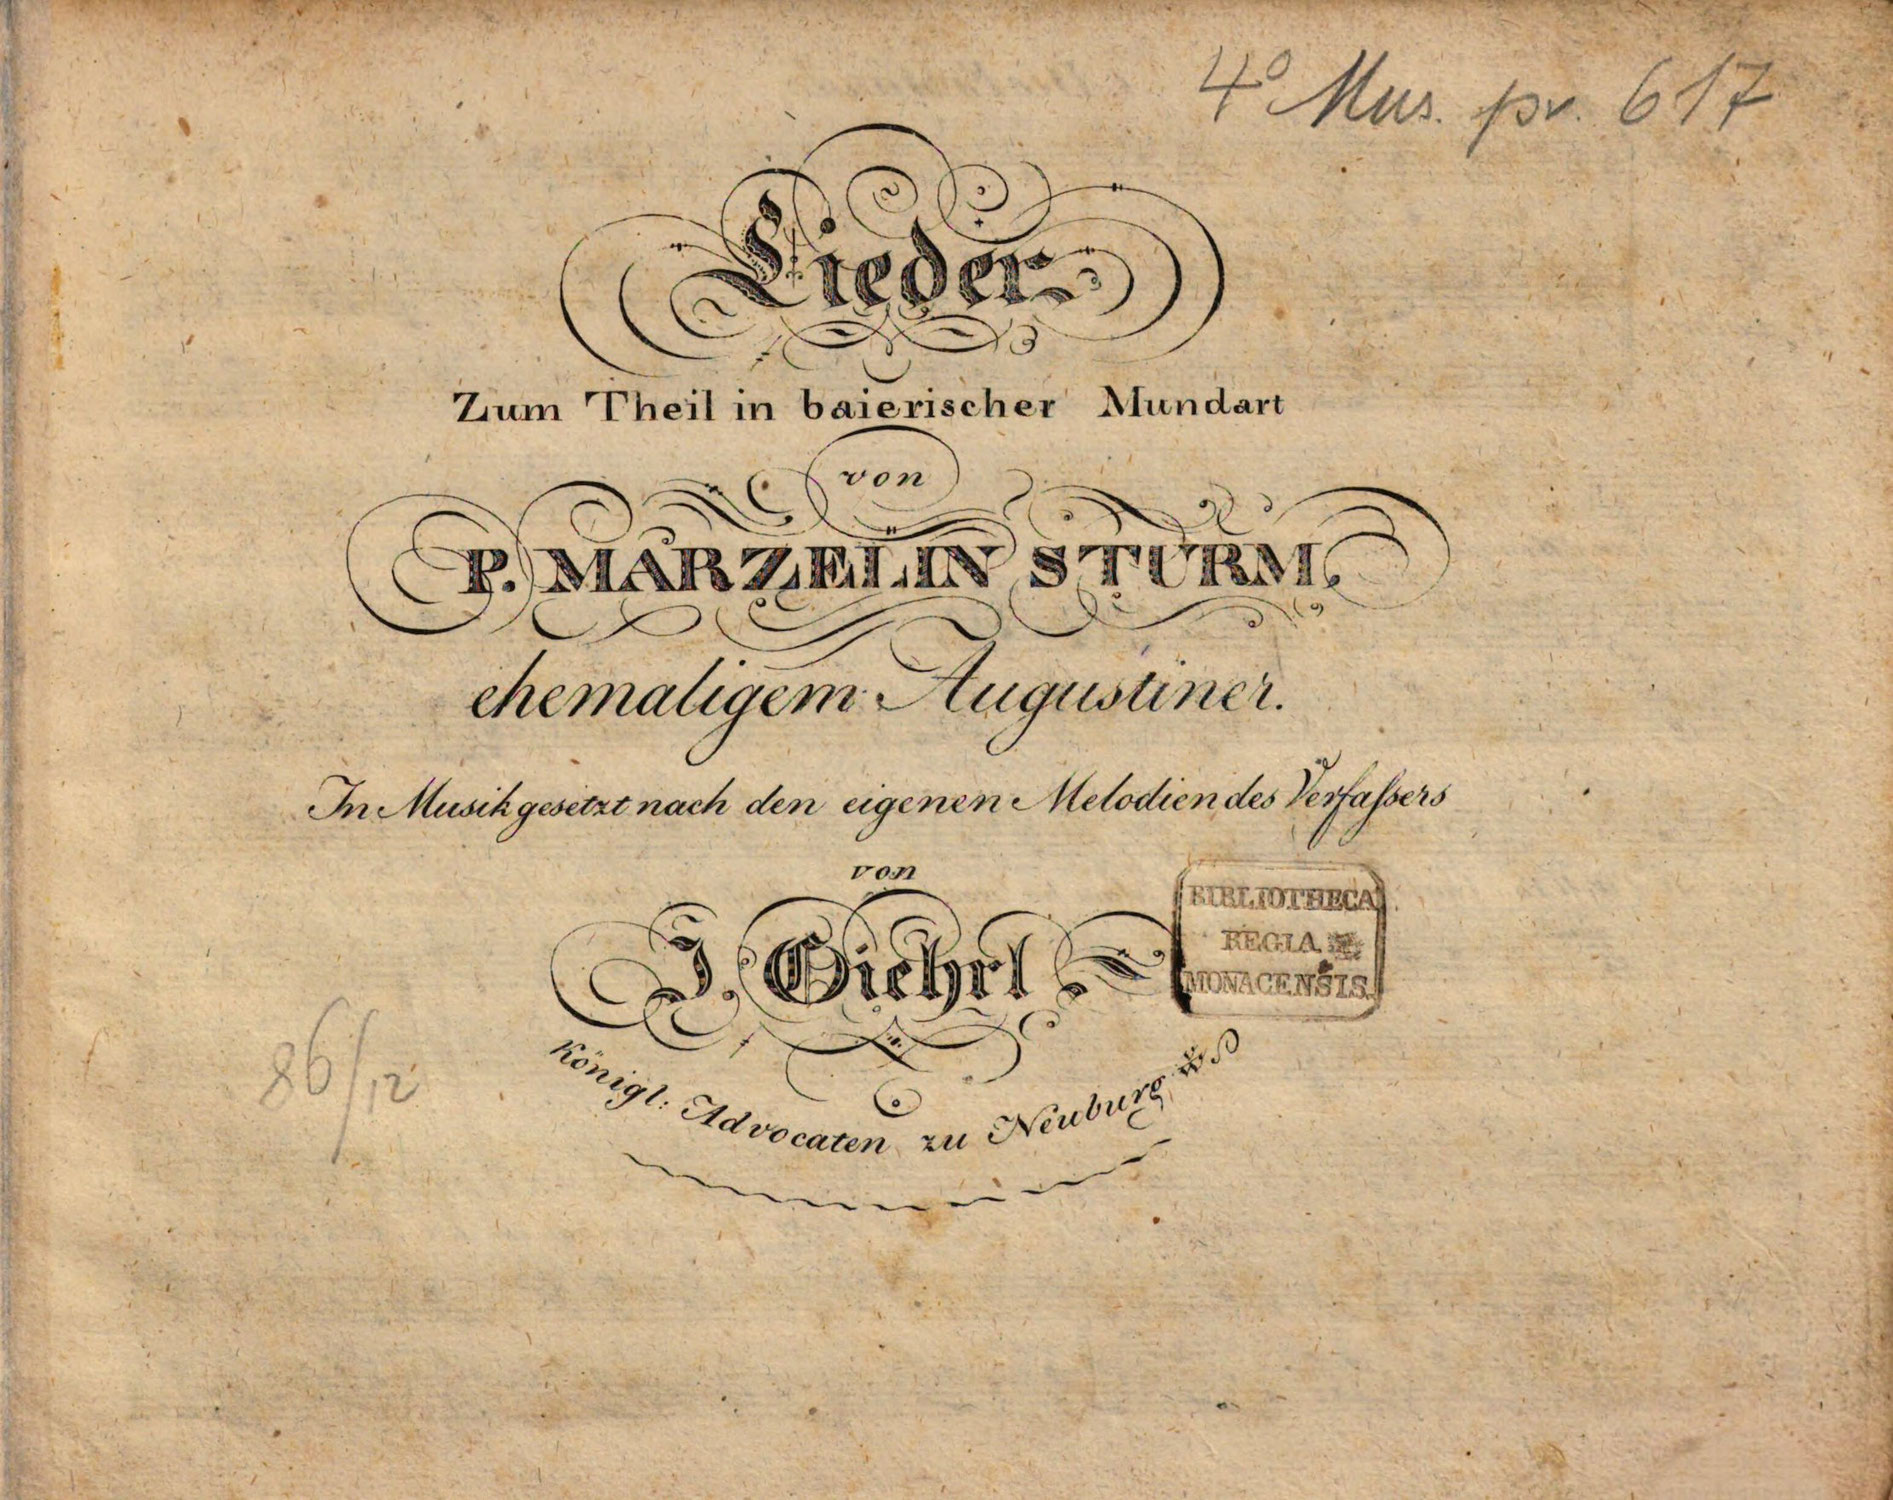 4° Mus. pr. 617
Lieder
Zum Theil in baierischer Mundart
von
P. MARZELIN STURM.
ehemaligem Augustiner.
In Musik gesetzt nach den eigenen Melodien des Verfaſsers
von
J. Giehrl
BIBLIOTHECA
REGIA
MONACENSIS.
Königl: Advocaten zu Neuburg
86/12